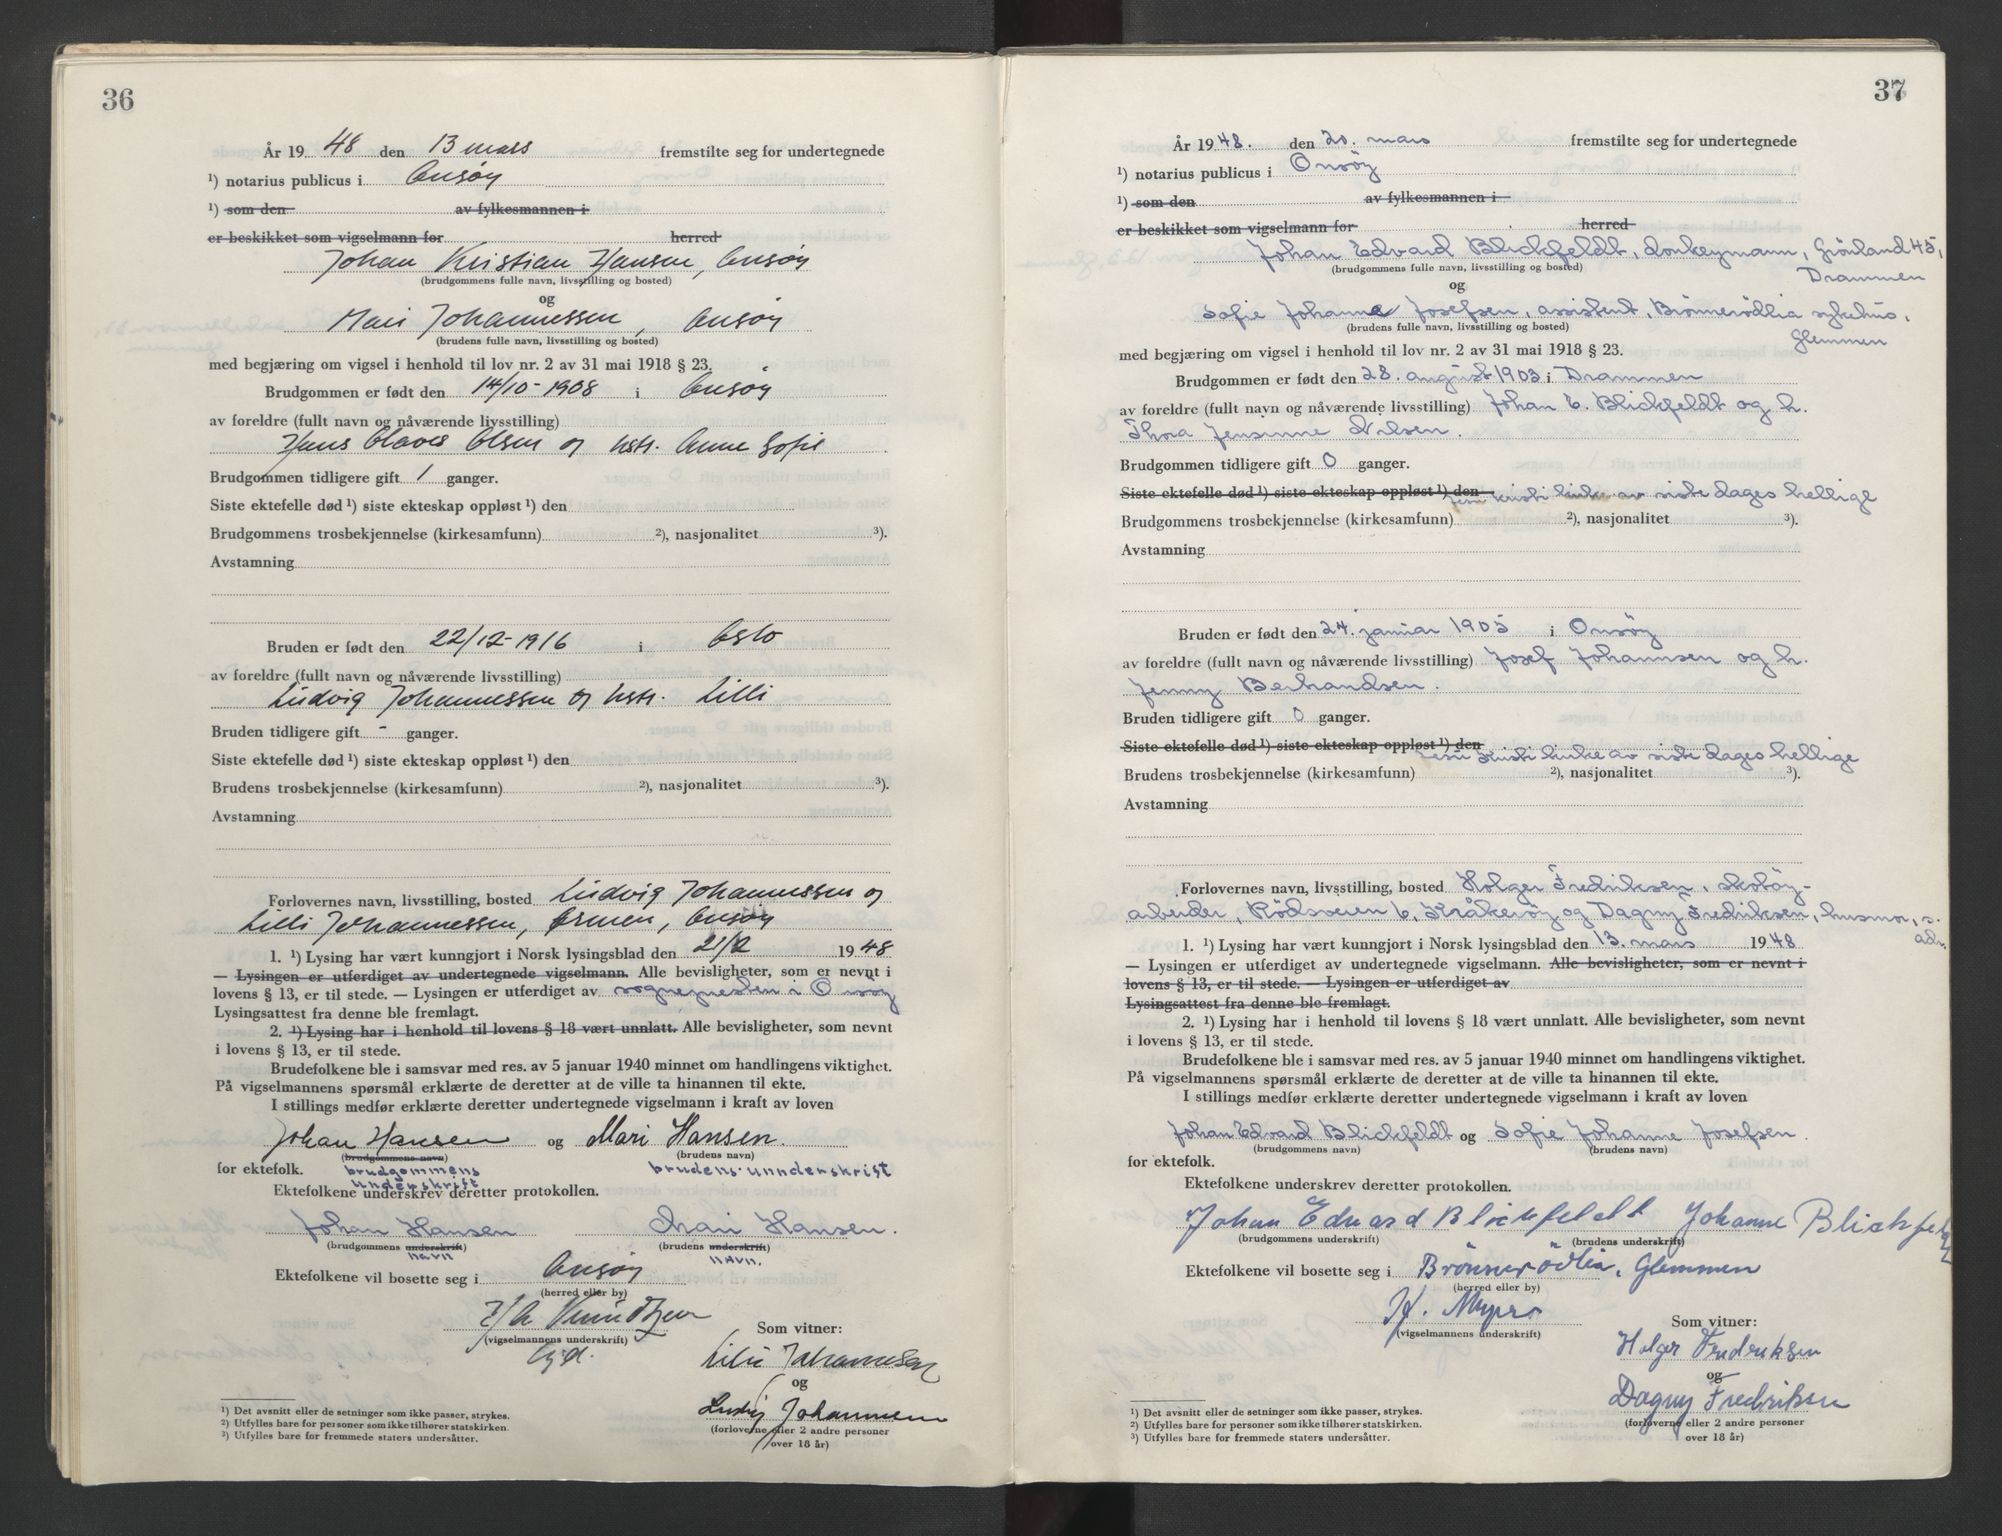 36
År 19 48 den 13 mars fremstilte seg for undertegnede
¹) notarius publicus i Onsøy
¹) som den av fylkesmannen i
er beskikket som vigselmann for herred
Johan Kristian Hansen, Onsøy
(brudgommens fulle navn, livsstilling og bosted)
og
Mari Johannessen, Onsøy
(brudens fulle navn, livsstilling og bosted)
med begjæring om vigsel i henhold til lov nr. 2 av 31 mai 1918 § 23.
Brudgommen er født den 14/10-1908 i Onsøy
av foreldre (fullt navn og nåværende livsstilling)
Hans Olaves Olsen og hstr. Anne Sofie
Brudgommen tidligere gift 1 ganger.
Siste ektefelle død ¹) siste ekteskap oppløst ¹) den
Brudgommens trosbekjennelse (kirkesamfunn) ²), nasjonalitet ³).
Avstamning
Bruden er født den 22/12-1916 i Oslo
av foreldre (fullt navn og nåværende livsstilling)
Ludvig Johannessen og hstr. Lilli
Bruden tidligere gift - ganger.
Siste ektefelle død ¹) siste ekteskap oppløst ¹) den
Brudens trosbekjennelse (kirkesamfunn) ²), nasjonalitet ³).
Avstamning
Forlovernes navn, livsstilling, bosted Ludvig Johannessen og
Lilli Johannessen, Ørmen, Onsøy
1. ¹) Lysing har vært kunngjort i Norsk lysingsblad den 21/2 1948
— Lysingen er utferdiget av undertegnede vigselmann. Alle bevisligheter, som er nevnt i
lovens § 13, er til stede. — Lysingen er utferdiget av sognepresten i Onsøy
Lysingsattest fra denne ble fremlagt.
2. ¹) Lysing har i henhold til lovens § 18 vært unnlatt. Alle bevisligheter, som nevnt
i lovens § 13, er til stede.
Brudefolkene ble i samsvar med res. av 5 januar 1940 minnet om handlingens viktighet.
På vigselmannens spørsmål erklærte de deretter at de ville ta hinannen til ekte.
I stillings medfør erklærte deretter undertegnede vigselmann i kraft av loven
Johan Hansen og Mari Hansen.
(brudgommens navn) (brudens navn)
for ektefolk. brudgommens brudens unnderskrist
underskrift
Ektefolkene underskrev deretter protokollen.
Johan Hansen Mari Hansen.
(brudgommens underskrift) (brudens underskrift)
navn navn.
Ektefolkene vil bosette seg i Onsøy
(herred eller by)
(vigselmannens underskrift) Som vitner:
Lilli Johannessen
og
Ludvig Johannessen
(forloverne eller 2 andre personer
over 18 år)
¹) Det avsnitt eller de setninger som ikke passer, strykes.
²) Utfylles bare for personer som ikke tilhører statskirken.
³) Utfylles bare for fremmede staters undersåtter.
37
År 1948. den 20. mars fremstilte seg for undertegnede
¹) notarius publicus i Onsöy
¹) som den av fylkesmannen i
er beskikket som vigselmann for herred
Johan Edvard Blickfeldt, donkeymann, Grönland 45,
Drammen
(brudgommens fulle navn, livsstilling og bosted)
og
Sofie Johanne Josefsen, assistent, Brönnerödlia sykehus,
Glemmen
(brudens fulle navn, livsstilling og bosted)
med begjæring om vigsel i henhold til lov nr. 2 av 31 mai 1918 § 23.
Brudgommen er født den 28. august 1903 i Drammen
av foreldre (fullt navn og nåværende livsstilling) Johan E. Blickfeldt og h.
Thora Jensinne Nilsen.
Brudgommen tidligere gift 0 ganger.
Siste ektefelle død ¹) siste ekteskap oppløst ¹) den
Jesu kristi kirke av siste dages hellige
Brudgommens trosbekjennelse (kirkesamfunn) ²), nasjonalitet ³).
Avstamning
Bruden er født den 24. januar 1905 i Onsöy
av foreldre (fullt navn og nåværende livsstilling) Josef Johannsen og h.
Jenny Berhandsen.
Bruden tidligere gift 0 ganger.
Siste ektefelle død ¹) siste ekteskap oppløst ¹) den
Jesu Kristi kirke av siste dages hellige
Brudens trosbekjennelse (kirkesamfunn) ²), nasjonalitet ³).
Avstamning
Forlovernes navn, livsstilling, bosted Holger Fredriksen, skotöy-
arbeider, Rödsveien 6, Kråkeröy og Dagny Fredriksen, husmor, s.
adr.
1. ¹) Lysing har vært kunngjort i Norsk lysingsblad den 13. mars 1948
— Lysingen er utferdiget av undertegnede vigselmann. Alle bevisligheter, som er nevnt i
lovens § 13, er til stede. — Lysingen er utferdiget av
Lysingsattest fra denne ble fremlagt.
2. ¹) Lysing har i henhold til lovens § 18 vært unnlatt. Alle bevisligheter, som nevnt
i lovens § 13, er til stede.
Brudefolkene ble i samsvar med res. av 5 januar 1940 minnet om handlingens viktighet.
På vigselmannens spørsmål erklærte de deretter at de ville ta hinannen til ekte.
I stillings medfør erklærte deretter undertegnede vigselmann i kraft av loven
Johan Edvard Blickfeldt og Sofie Johanne Josefsen.
(brudgommens navn) (brudens navn)
for ektefolk.
Ektefolkene underskrev deretter protokollen.
Johan Edvard Blickfeldt Johanne Blickfeldt
(brudgommens underskrift) (brudens underskrift)
Ektefolkene vil bosette seg i Brönnerödlia, Glemmen
(herred eller by)
(vigselmannens underskrift) Som vitner:
Holger Fredriksen
og
Dagny Fredriksen
(forloverne eller 2 andre personer
over 18 år)
¹) Det avsnitt eller de setninger som ikke passer, strykes.
²) Utfylles bare for personer som ikke tilhører statskirken.
³) Utfylles bare for fremmede staters undersåtter.